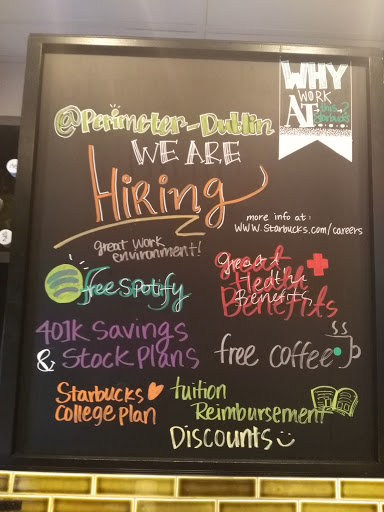 WHY
WORK
AT this
Starbucks?
@Perimeter-Dublin
WE ARE
HiRing
more info at:
www.starbucks.com/careers
great work
environment!
free spotify
Great
Health
Benefits
401k Savings
& Stock Plans
free coffee
Starbucks
College Plan
tuition
Reimbursement
Discounts